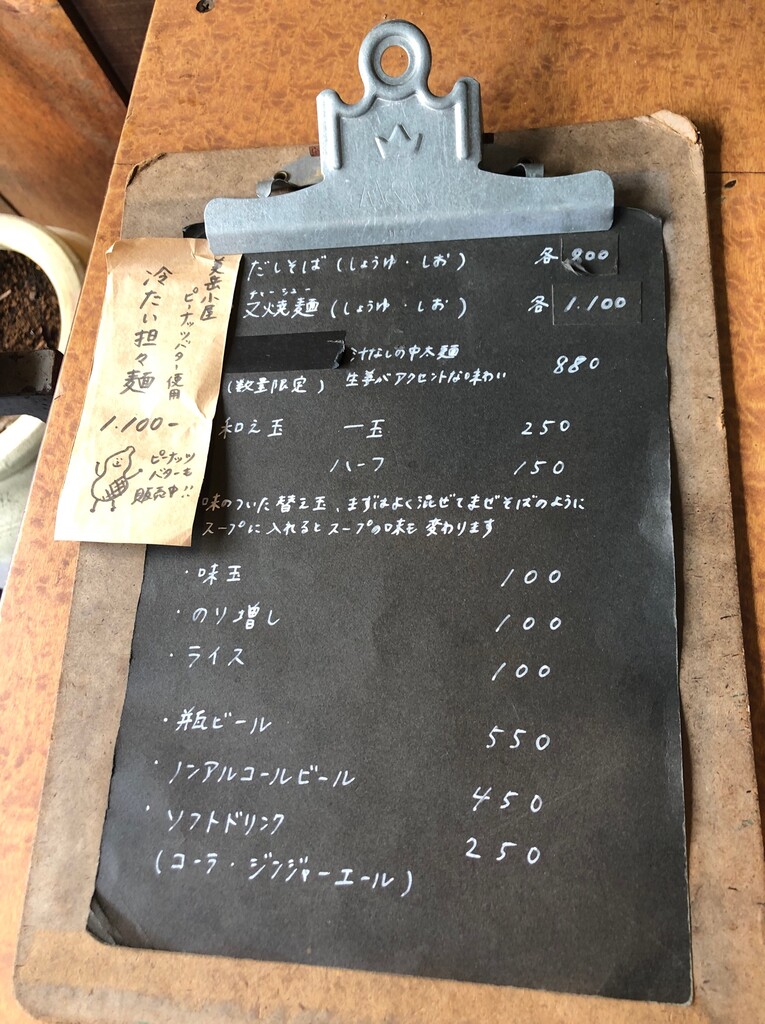 だしそば (しょうゆ・しお) 各 800
チャーシュー
叉焼麺 (しょうゆ・しお) 各 1.100
汁なしの中太麺
(数量限定) 生姜がアクセントな味わい 880
和え玉 一玉 250
ハーフ 150
味のついた替え玉、まずはよく混ぜてまぜそばのように
スープに入れるとスープの味も変わります
・味玉 100
・のり増し 100
・ライス 100
・瓶ビール 550
・ノンアルコールビール 450
・ソフトドリンク 250
(コーラ・ジンジャーエール)
岳小屋
ピーナッツバター使用
冷たい担々麺
1.100-
ピーナッツ
バターも
販売中!!